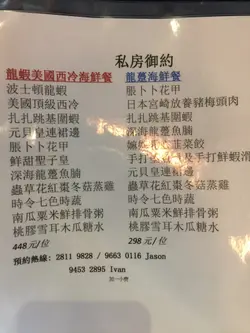 私房御約
龍蝦美國西冷海鮮餐
波士頓龍蝦
美國頂級西冷
扎扎跳基圍蝦
元貝皇連裙邊
脹卜卜花甲
鮮甜聖子皇
深海龍躉魚腩
蟲草花紅棗冬菇蒸雞
時令七色時蔬
南瓜粟米鮮排骨粥
桃膠雪耳木瓜糖水
448元/位
龍躉海鮮餐
脹卜卜花甲
日本宮崎放養豬梅頭肉
扎扎跳基圍蝦
深海龍躉魚腩
韮菜餃
手打 及手打鮮蝦滑
元貝皇連裙邊
蟲草花紅棗冬菇蒸雞
時令七色時蔬
南瓜粟米鮮排骨粥
桃膠雪耳木瓜糖水
298 元/位
預約熱線: 2811 9828 / 9663 0116 Jason
9453 2895 Ivan